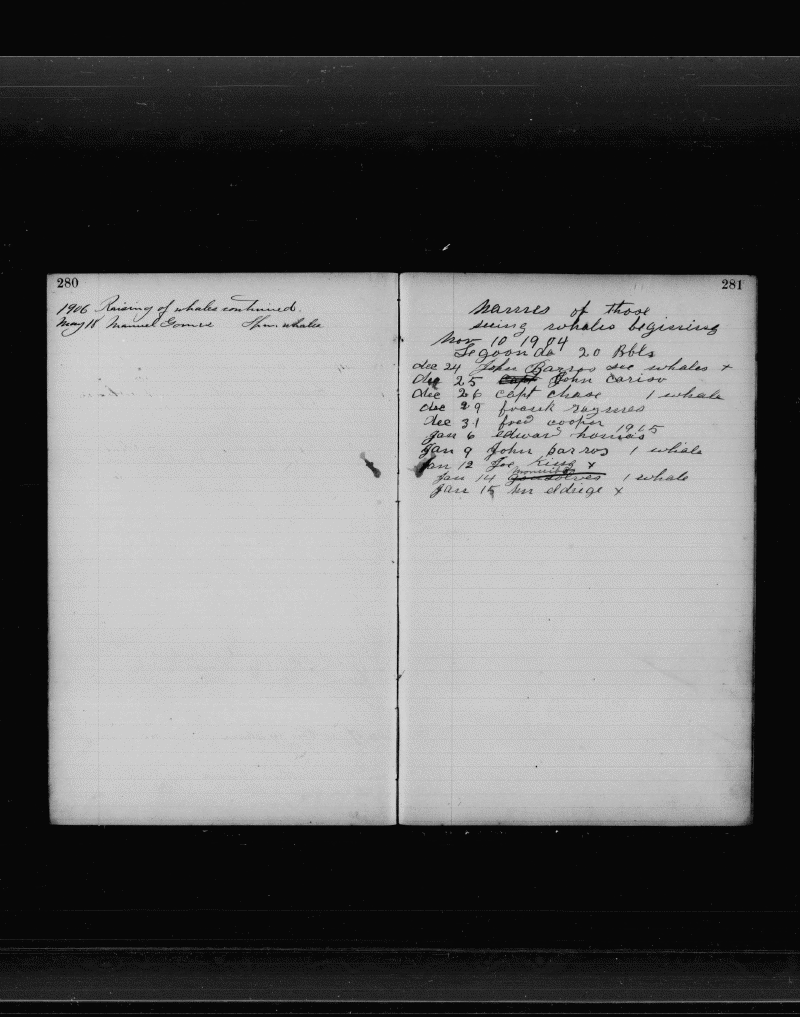 280
1906 Raising of whales continued.
May 18 Manuel Gomes Spm. whales
281
Names of those
seeing whales begining
Nov 10 1904
Segoonda 20 Bbls
dec 24 John Barros see whales +
dec 25 John cariso
dec 26 capt chase 1 whale
dec 29 frank raymes
dec 31 fred cooper
Jan 6 edward 1905
Jan 9 John barros 1 whale
Jan 12 Joe King x
Jan 14 1 whale
Jan 15 eldrige x